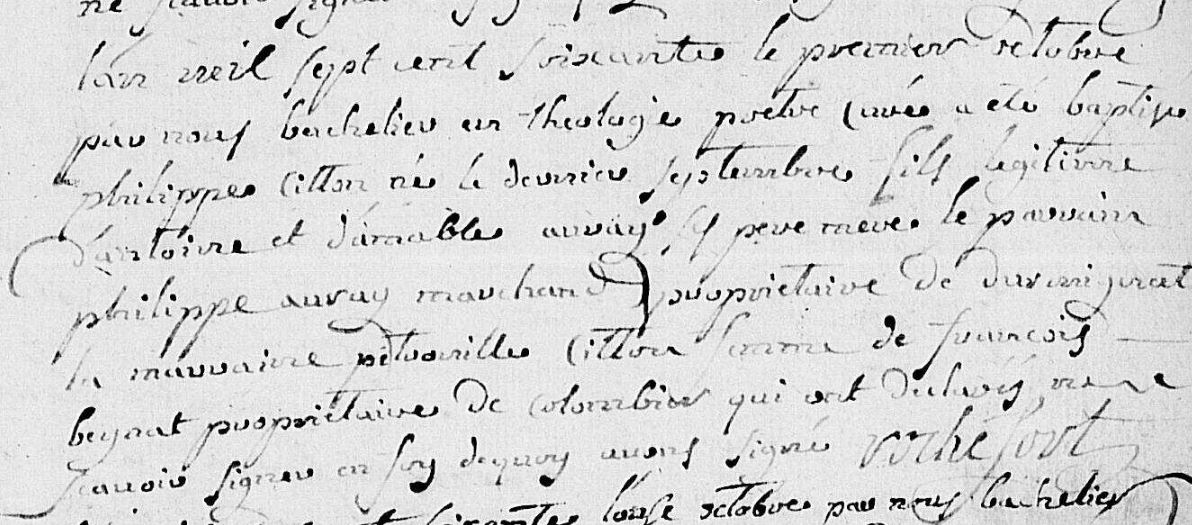 ne scavoir signer
l'an meil sept cent soixante le premier octobre
par nous bachelier en theologie pretre curé a été baptisé
philippe Citton né le dernier septembre fils legitime
d'antoine et d'amable auray ses pere mere le parrain
philippe auray marchand proprietaire de
la marraine petronille Citton femme de françois
beynat proprietaire de colombier qui ont declaré ne
scavoir signer en foy dequoy avons signé rochefort
soixante l'onse octobre par nous bachelier